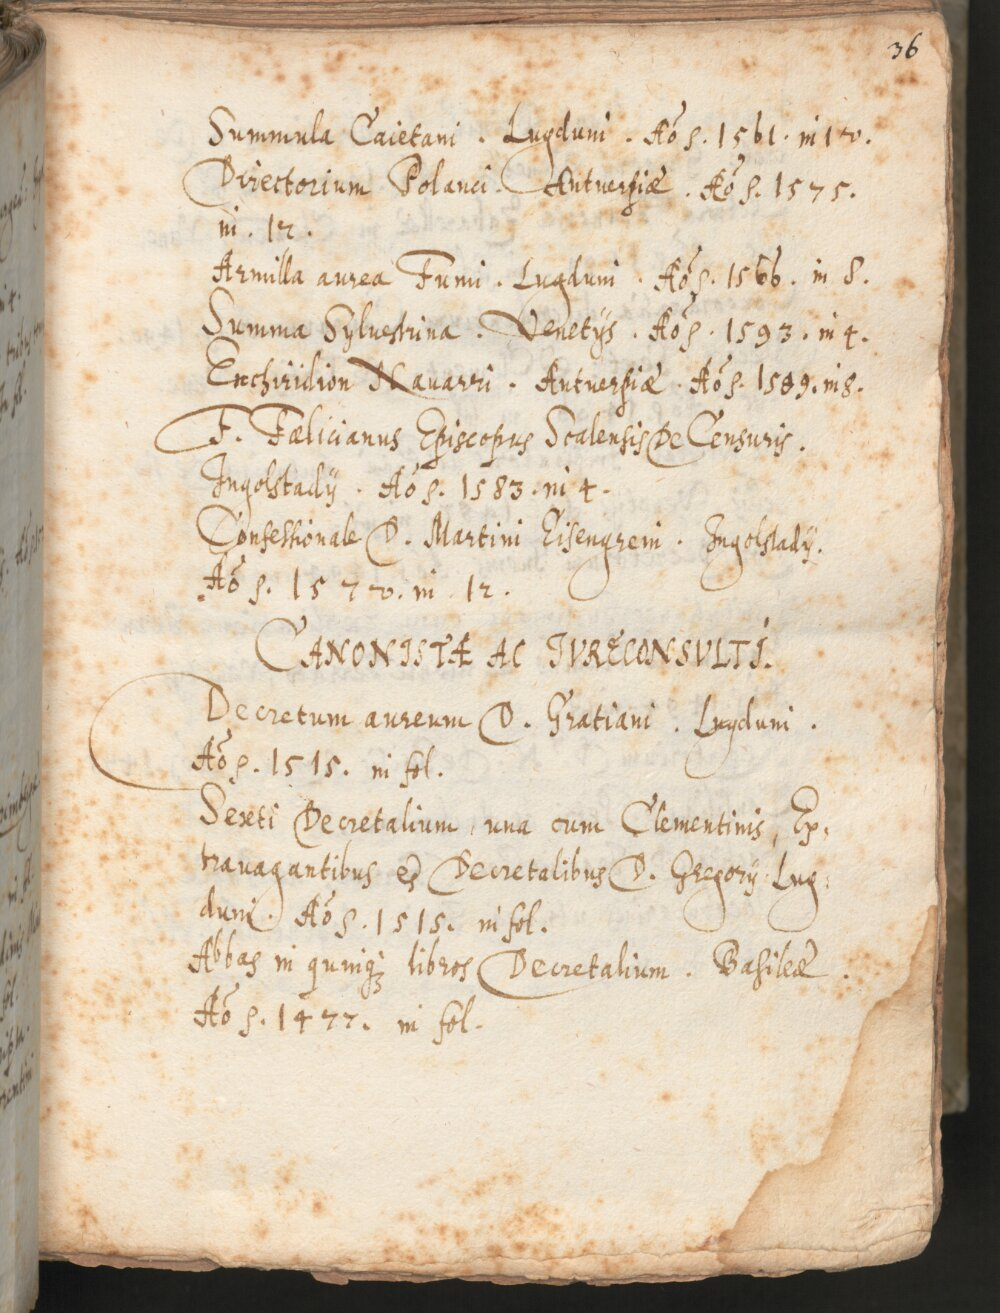 36
Summula Caietani . Lugduni . Aõ s. 1561. in 12.
Directorium Polanci . Antuerpiæ . Aõ s. 1575.
in . 12.
Armilla aurea Fumi . Lugduni . Aõ s. 1566. in 8.
Summa Sylvestrina . Venetijs . Aõ s. 1593. in 4.
Enchiridion Navarri . Antuerpiæ . Aõ s. 1589. in 8.
F. Fælicianus Episcopus Scalensis De Censuris.
Ingolstadij . Aõ s. 1583. in 4.
Confessionale D. Martini Eisengreini . Ingolstadij.
Aõ s. 1572. in 12.
CANONISTÆ AC IVRECONSVLTI.
Decretum aureum D. Gratiani . Lugduni .
Aõ s. 1515. in fol.
Sexti Decretalium una cum Clementinis, Ex-
travagantibus et Decretalibus D. Gregorij Lug
duni . Aõ s. 1515. in fol.
Abbas in quinqꝫ libros Decretalium . Basileæ .
Aõ s. 1477. in fol.